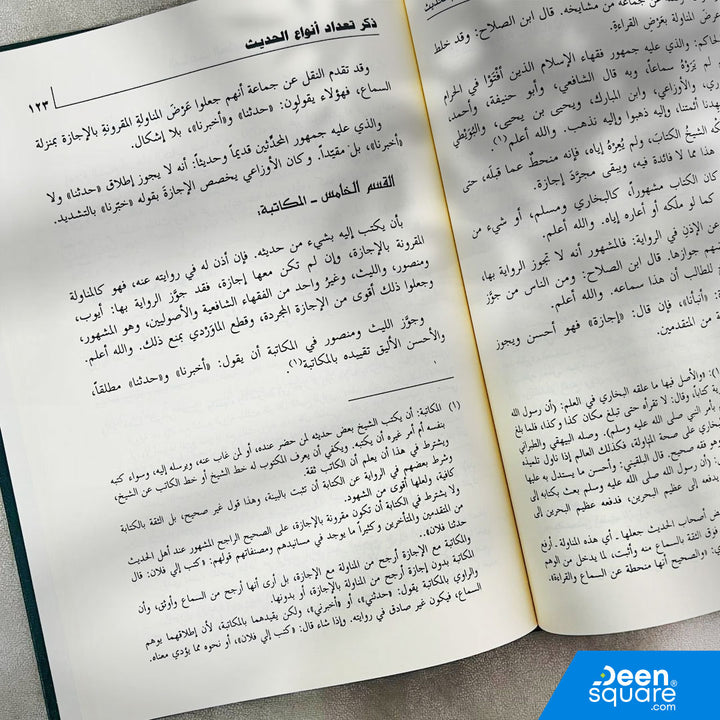 ذكر تعداد أنواع الحديث
١٢٣
وقد تقدم النقل عن جماعة أنهم جعلوا عَرْضَ المناولةِ المقرونةِ بالإجازة بمنزلة
السماع، فهؤلاء يقولون: «حدثنا» و«أخبرنا»، بلا إشكال.
والذي عليه جمهور المحدِّثين قديماً وحديثاً: أنه لا يجوز إطلاق «حدثنا» ولا
«أخبرنا»، بل مقيَّداً. وكان الأوزاعي يخصص الإجازةَ بقوله «خبّرنا» بالتشديد.
القسم الخامس ـ المكاتبة:
بأن يكتب إليه بشيء من حديثه. فإن أذن له في روايته عنه، فهو كالمناولة
المقرونة بالإجازة، وإن لم تكن معها إجازة، فقد جوَّز الرواية بها: أيوب،
ومنصور، والليث، وغيرُ واحد من الفقهاء الشافعية والأصوليين، وهو المشهور،
وجعلوا ذلك أقوى من الإجازة المجردة، وقطع الماوَرْدي بمنع ذلك. والله أعلم.
وجوَّز الليث ومنصور في المكاتبة أن يقول: «أخبرنا» و«حدثنا» مطلقاً،
والأحسن الأليق تقييده بالمكاتبة(١).
(١) المكاتبة: أن يكتب الشيخ بعض حديثه لمن حضر عنده، أو لمن غاب عنه، ويرسله إليه، وسواء كتبه
بنفسه أم أمر غيره أن يكتبه. ويكفي أن يعرف المكتوب له خط الشيخ أو خط الكاتب عن الشيخ،
ويشترط في هذا أن يعلم أن الكاتب ثقة.
وشرط بعضهم في الرواية عن الكتابة أن تثبت بالبينة، وهذا قول غير صحيح، بل الثقة بالكتابة
كافية، ولعلها أقوى من الشهود.
ولا يشترط في الكتابة أن تكون مقرونة بالإجازة، على الصحيح الراجح المشهور عند أهل الحديث
من المتقدمين والمتأخرين وكثيراً ما يوجد في مسانيدهم ومصنفاتهم قولهم: «كتب إلي فلان: قال
حدثنا فلان».
والمكاتبة مع الإجازة أرجح من المناولة مع الإجازة، بل أرى أنها أرجح من السماع وأوثق، وأن
المكاتبة بدون إجازة أرجح من المناولة بالإجازة، أو بدونها.
والراوي بالمكاتبة يقول: «حدثني»، أو «أخبرني»، ولكن يقيدهما بالمكاتبة، لأن إطلاقهما يوهم
السماع، فيكون غير صادق في روايته. وإذا شاء قال: «كتب إلي فلان»، أو نحوه مما يؤدي معناه.
عن جماعة من مشايخه. قال ابن الصلاح: وقد خلط
عرض المناولة بعَرْضِ القراءةِ.
الحاكم: والذي عليه جمهور فقهاء الإسلام الذين أفْتَوْا في الحرام
لم يَرَوْهُ سماعاً، وبه قال الشافعي، وأبو حنيفة، وأحمد،
والأوزاعي، وابن المبارك، ويحيى بن يحيى، والبُوَيْطي
عهدنا أئمتنا، وإليه ذهبوا وإليه نذهب. والله أعلم(١).
الشيخُ الكتابَ، ولم يُعِرْهُ إياه، فإنه منحطٌّ عما قبلَه، حتى
هذا مما لا فائدة فيه، ويبقى مجرَّدَ إجازة.
كان الكتاب مشهوراً، كالبخاري ومسلم، أو شيء من
كما لو ملَّكه أو أعاره إياه. والله أعلم.
عن الإذن في الرواية: فالمشهور أنه لا تجوز الرواية بها،
جوازها. قال ابن الصلاح: ومن الناس من جوَّز
للطالب أن هذا سماعه. والله أعلم.
«أنبأنا»، فإن قال: «إجازة» فهو أحسن ويجوز
من المتقدمين.
«والأصل فيها ما علقه البخاري في العلم: (أن رسول الله
كتاباً، وقال: لا تقرأه حتى تبلغ مكان كذا وكذا، فلما بلغ
بأمر النبي صلى الله عليه وسلم). وصله البيهقي والطبراني
البخاري على صحة المناولة، فكذلك العالم إذا ناول تلميذه
فقه صحيح. قال البلقيني: وأحسن ما يستدل به عليها
أن رسول الله صلى الله عليه وسلم بعث بكتابه إلى
يدفعه إلى عظيم البحرين، فدفعه عظيم البحرين إلى
أصحاب الحديث جعلها ـ أي هذه المناولة ـ أرفع
فوق الثقة بالسماع منه وأثبت، لما يدخل من الوهم
«والصحيح أنها منحطة عن السماع والقراءة».
Deen
square®
.com